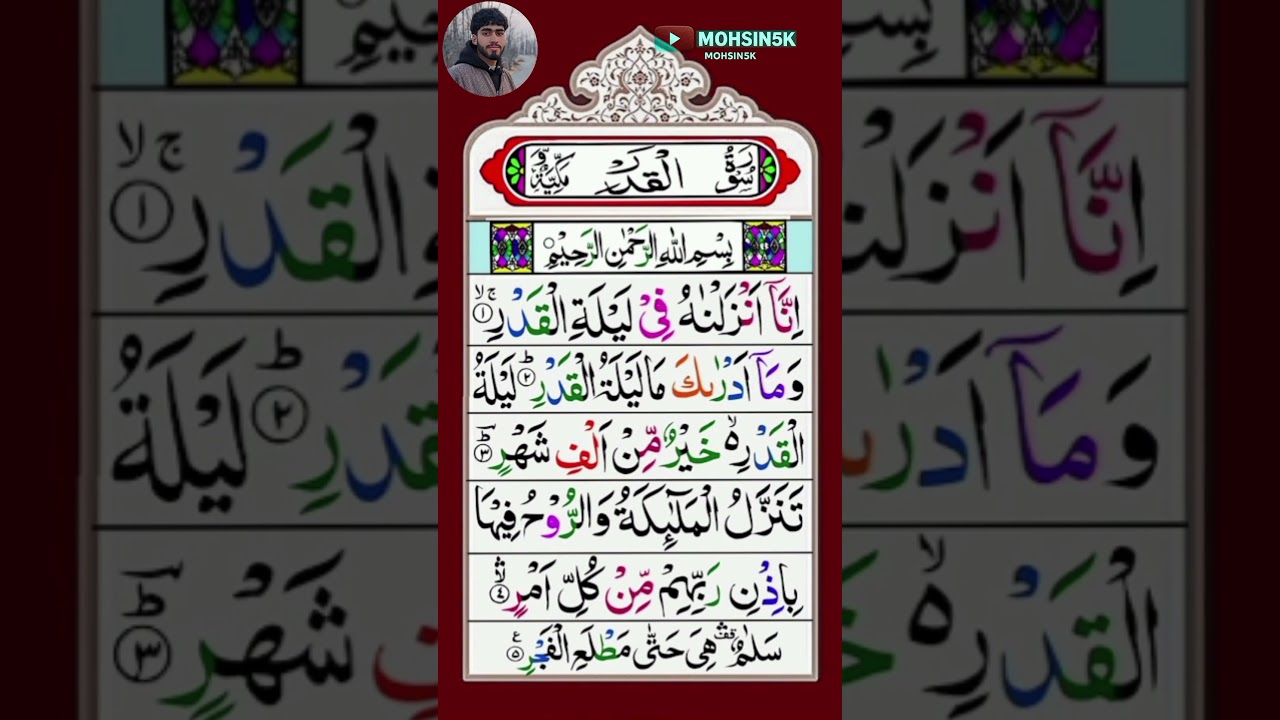 MOHSIN5K
MOHSIN5K
سُوْرَةُ الْقَدْرِ مَكِّیَّةٌ
بِسْمِ اللهِ الرَّحْمٰنِ الرَّحِیْمِ
اِنَّاۤ اَنْزَلْنٰهُ فِیْ لَیْلَةِ الْقَدْرِ ۚۖ۱
وَمَاۤ اَدْرٰىكَ مَا لَیْلَةُ الْقَدْرِ ؕ۲ لَیْلَةُ
الْقَدْرِ ۙ۬ خَیْرٌ مِّنْ اَلْفِ شَهْرٍ ؕ۳
تَنَزَّلُ الْمَلٰٓىِٕكَةُ وَالرُّوْحُ فِیْهَا
بِاِذْنِ رَبِّهِمْ مِّنْ كُلِّ اَمْرٍ ۙۛ۴
سَلٰمٌ ۛ۫ هِیَ حَتّٰى مَطْلَعِ الْفَجْرِ ۵ ع